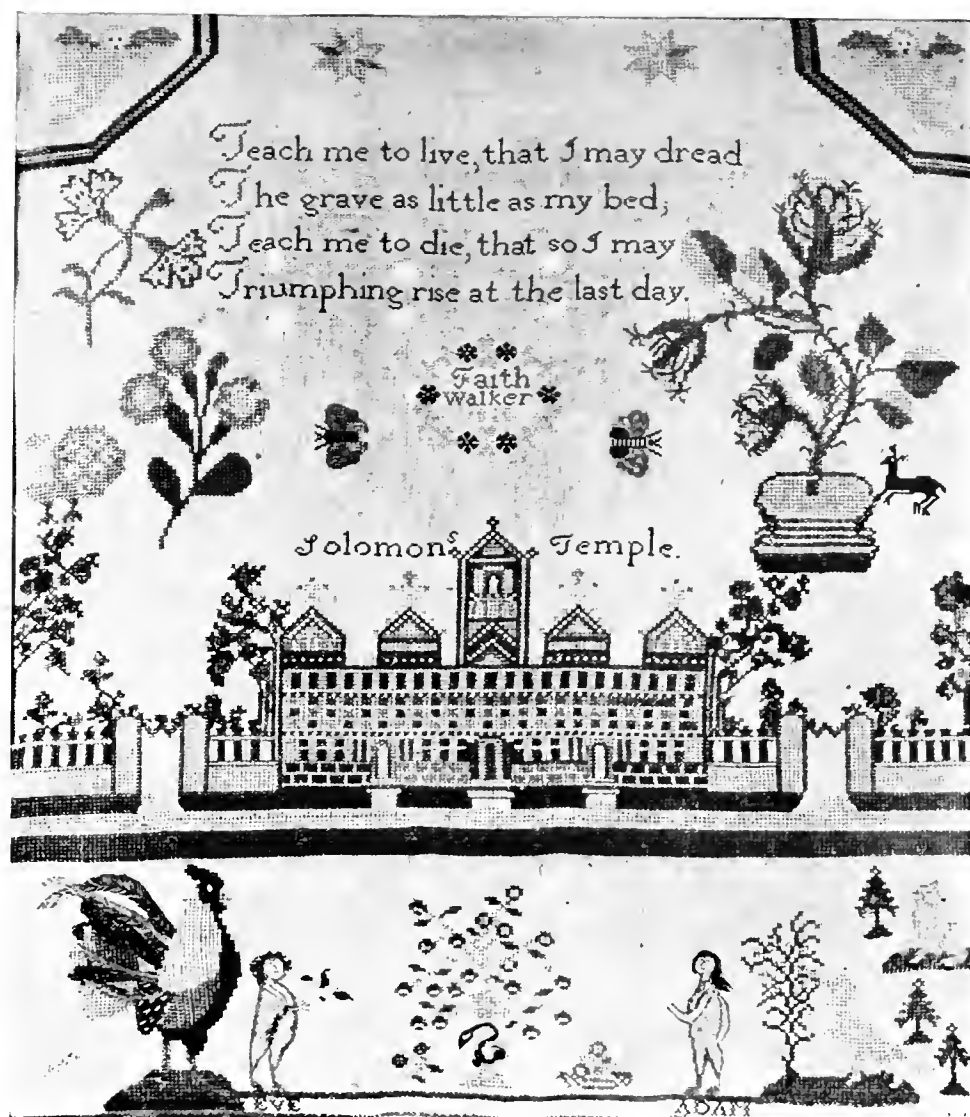 Teach me to live, that I may dread
The grave as little as my bed;
Teach me to die, that so I may
Triumphing rise at the last day.
Faith
Walker
Solomons Temple.
EVE
ADAM